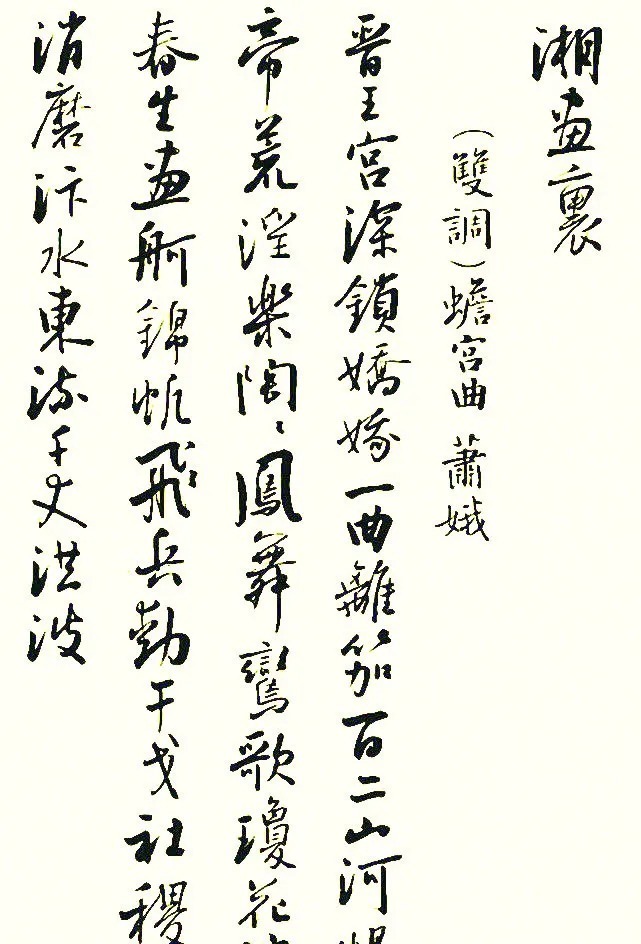 湘畫裏
（雙調）蟾宮曲 蕭娥
晉王宮深鎖嬌娥一曲離笳百二山河
帝荒淫樂陶〻鳳舞鸞歌瓊花
春生畫舸錦帆飛兵動干戈社稷
消磨汴水東流千丈洪波